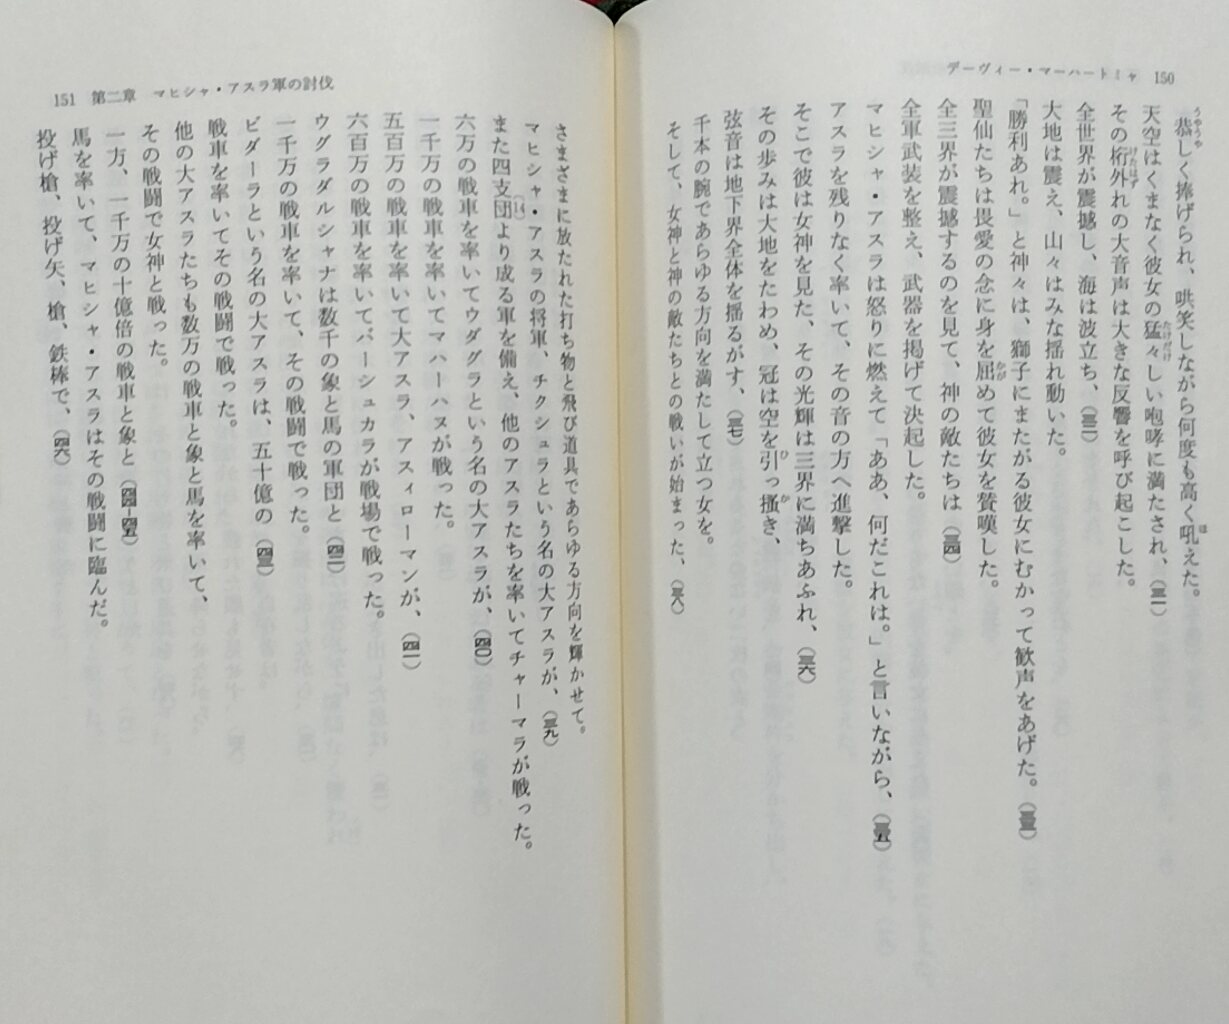 デーヴィー・マーハートミャ 150
恭しく捧げられ、哄笑しながら何度も高く吼えた。
天空はくまなく彼女の猛々しい咆哮に満たされ、(三二)
その桁外れの大音声は大きな反響を呼び起こした。
全世界が震撼し、海は波立ち、(三三)
大地は震え、山々はみな揺れ動いた。
「勝利あれ。」と神々は、獅子にまたがる彼女にむかって歓声をあげた。(三三)
聖仙たちは畏愛の念に身を屈めて彼女を賛嘆した。
全三界が震撼するのを見て、神の敵たちは(三四)
全軍武装を整え、武器を掲げて決起した。
マヒシャ・アスラは怒りに燃えて「ああ、何だこれは。」と言いながら、(三五)
アスラを残りなく率いて、その音の方へ進撃した。
そこで彼は女神を見た、その光輝は三界に満ちあふれ、(三六)
その歩みは大地をたわめ、冠は空を引っ掻き、
弦音は地下界全体を揺るがす、(三七)
千本の腕であらゆる方向を満たして立つ女を。
そして、女神と神の敵たちとの戦いが始まった、(三八)
151 第二章 マヒシャ・アスラ軍の討伐
さまざまに放たれた打ち物と飛び道具であらゆる方向を輝かせて。
マヒシャ・アスラの将軍、チクシュラという名の大アスラが、(三九)
また四支団より成る軍を備え、他のアスラたちを率いてチャーマラが戦った。
六万の戦車を率いてウダグラという名の大アスラが、(四〇)
一千万の戦車を率いてマハーハヌが戦った。
五百万の戦車を率いて大アスラ、アスィローマンが、(四一)
六百万の戦車を率いてバーシュカラが戦場で戦った。
ウグラダルシャナは数千の象と馬の軍団と(四二)
一千万の戦車を率いて、その戦闘で戦った。
ビダーラという名の大アスラは、五十億の(四三)
戦車を率いてその戦闘で戦った。
他の大アスラたちも数万の戦車と象と馬を率いて、
その戦闘で女神と戦った。
一方、一千万の十億倍の戦車と象と(四四-四五)
馬を率いて、マヒシャ・アスラはその戦闘に臨んだ。
投げ槍、投げ矢、槍、鉄棒で、(四六)